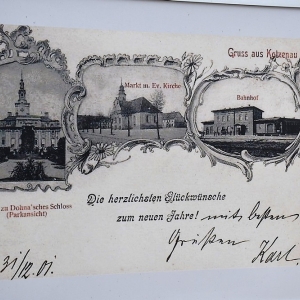 Gruss aus Kotzenau
Markt m. Ev. Kirche
Bahnhof
zu Dohna'sches Schloss
(Parkansicht)
Die herzlichsten Glückwünsche
zum neuen Jahre! mit besten
Grüßen Karl
31/12.01.